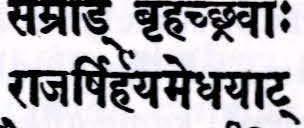 सम्राड् बृहच्छ्रवाः
राजर्षिर्हयमेधयाट्